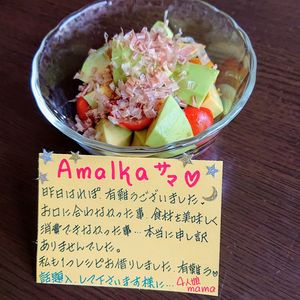 Amalkaサマ♡
昨日はれぽ、有難うございました。
お口に合わなかった事、食材を美味しく
消費できなかった事…本当に申し訳
ありませんでした。
私も1つレシピお借りしました。有難う♡
話題入、してデさいます様に…
4人娘
mama